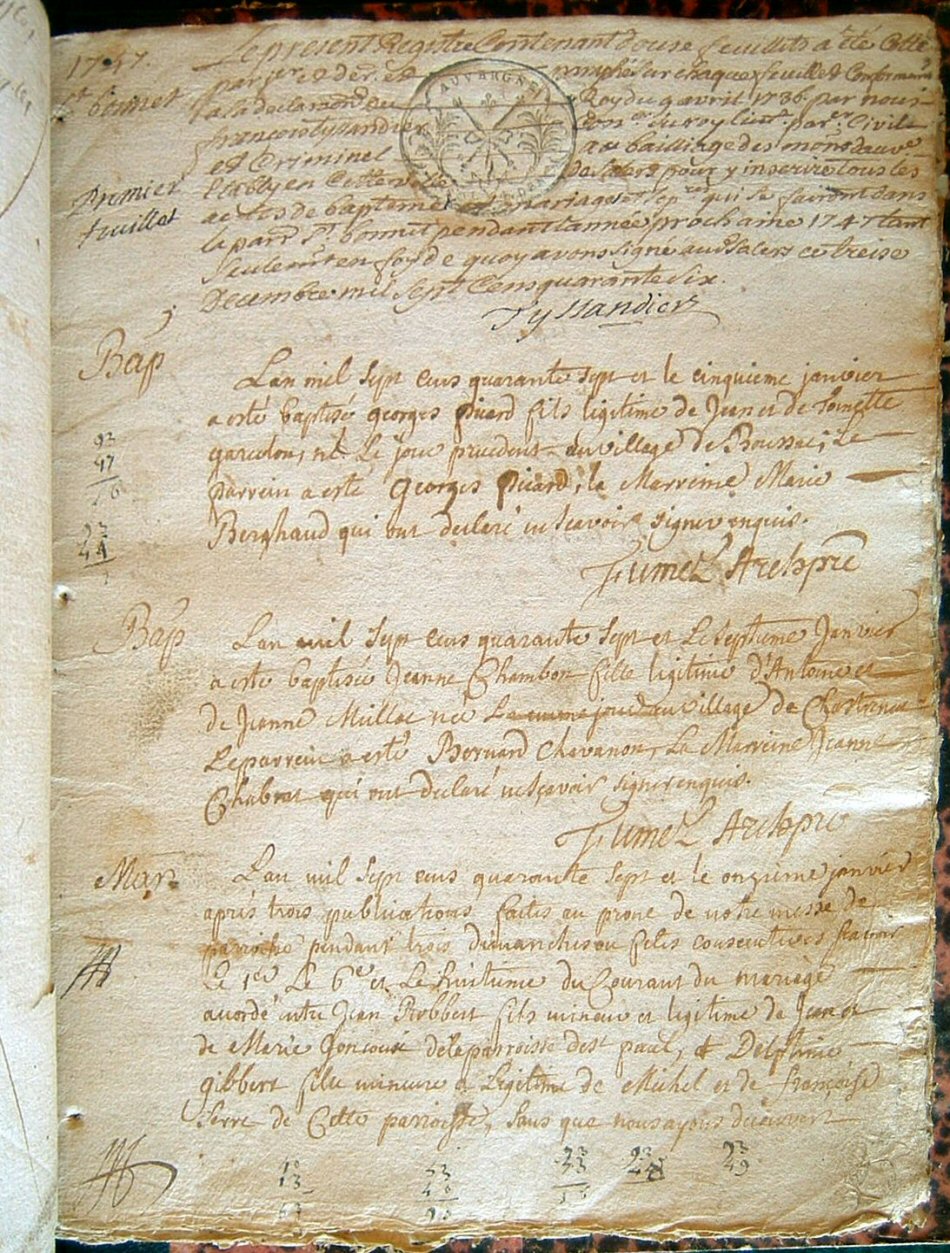 1747.
St bonnet
Premier
feuillet
Le present Registre Contenant douse feuillets a été Cotté
par per et der. et paraphé sur chaque feuillet Conformem
a la declaraon. du Roy du 9 avril 1736. par nous
françois tyssandier Con.er du roy lieut. par.er Civil
et Criminel au bailliage des mons dauve
Etably en Cette ville de Salers pour y inscrire tous les
actes de baptemes mariages et sep.res qui se fairont dans
la parr. St bonnet pendant l'année prochaine 1747 tant
seulemt en foy de quoy avons signé aud. Salers ce treise
Decembre mil sept Cens quarante six.
Tyssandier
Bap
Lan mil sept cens quarante sept et le cinquieme janvier
a esté baptisé Georges picard fils legitime de Jean et de Toinette
né Le jour precedent du village de Boussac, Le
parrein a esté Georges picard, la Marreine Marie
Berghaud qui ont declaré ne scavoir signer enquis.
Fumel Archpre
93
47
23
44
Bap
Lan mil sept cens quarante sept et Le septieme Janvier
a esté baptisée Jeanne Chambon fille legitime d'Antoine et
de Jeanne Muillac née Le meme jour du village de
Le parrein a esté Bernard Chavanon, La Marreine Jeanne
Chabrat qui ont declaré ne scavoir signer enquis.
Fumel Archpre
Mar.
Lan mil sept cens quarante sept et le onzieme janvier
aprés trois publications faites au prone de notre messe de
paroisse pendant trois dimanches ou fetes consecutives scavoir
Le 1er Le 6e et Le huitieme du Courant du mariage
accordé entre Jean Robbert fils mineur et legitime de Jean et
de Marie de la parroisse de st paul, et Delphine
gibbert fille mineure et Legitime de Michel et de françoise
Serre de Cette parroisse, sans que nous ayons decouvert
13
23
23
23
49